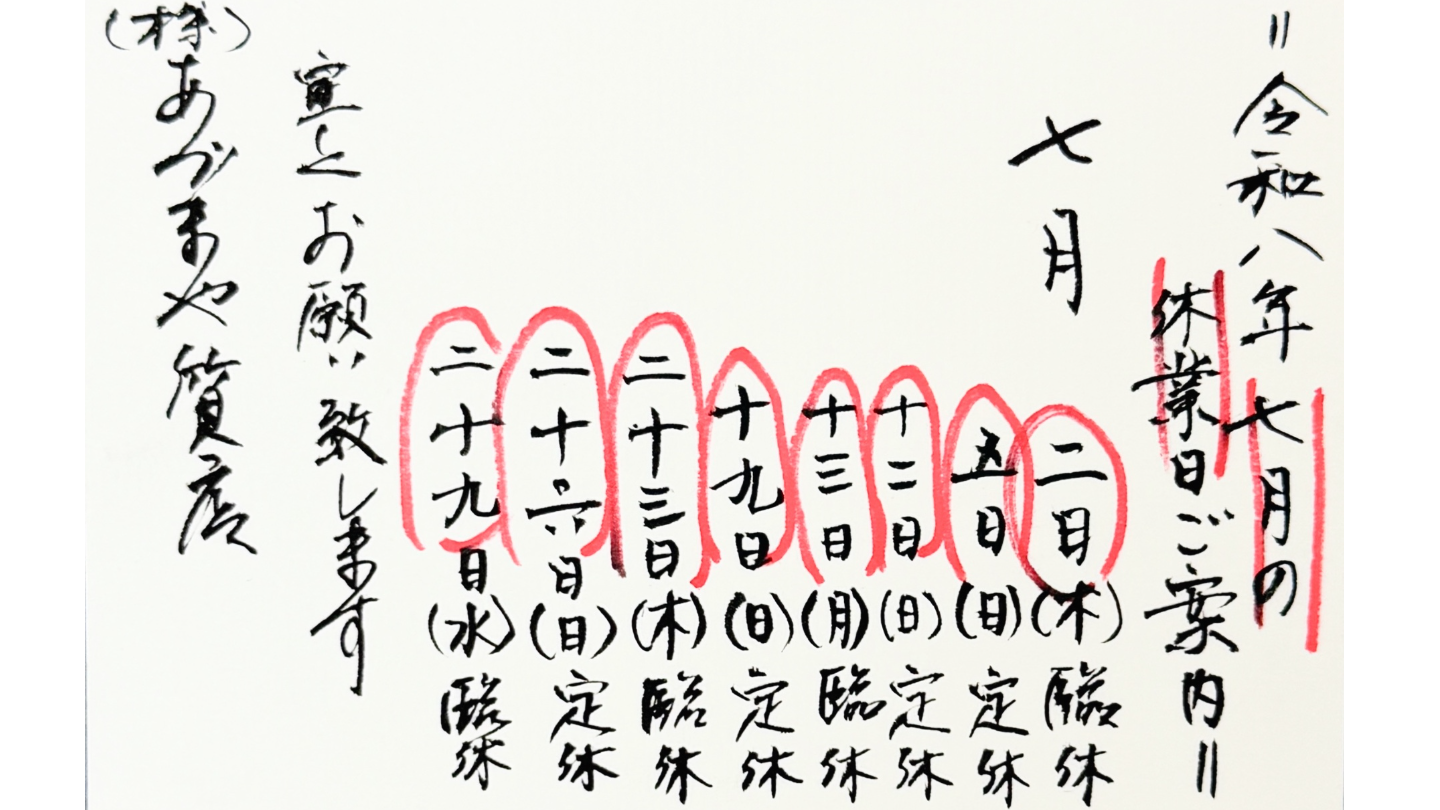 =令和八年七月の
休業日ご案内=
七月
二日(木)臨休
五日(日)定休
十二日(日)定休
十三日(月)臨休
十九日(日)定休
二十三日(木)臨休
二十六日(日)定休
二十九日(水)臨休
宜しくお願い致します
(株)あづまや質店